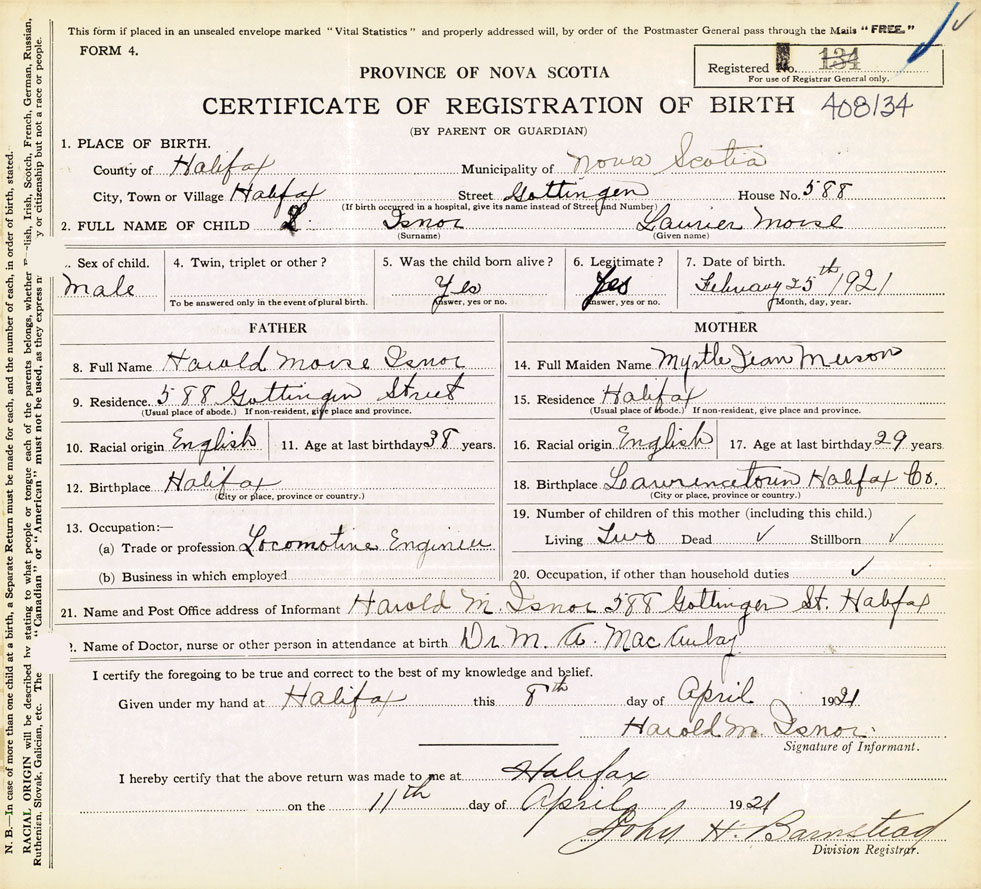 This form if placed in an unsealed envelope marked "Vital Statistics" and properly addressed will, by order of the Postmaster General pass through the Mails "FREE."
FORM 4.
Registered No. 134
For use of Registrar General only.
PROVINCE OF NOVA SCOTIA
CERTIFICATE OF REGISTRATION OF BIRTH 408134
(BY PARENT OR GUARDIAN)
1. PLACE OF BIRTH.
County of Halifax Municipality of Nova Scotia
City, Town or Village Halifax Street Gottingen House No. 588
(If birth occurred in a hospital, give its name instead of Street and Number)
2. FULL NAME OF CHILD Isnor Laurier Morse
(Surname) (Given name)
. Sex of child. 4. Twin, triplet or other? 5. Was the child born alive? 6. Legitimate? 7. Date of birth.
Male Yes Yes February 25th 1921
To be answered only in the event of plural birth. Answer, yes or no. Answer, yes or no. Month, day, year.
FATHER MOTHER
8. Full Name Harold Morse Isnor
14. Full Maiden Name Myrtle Jean
9. Residence. 588 Gottingen Street
(Usual place of abode.) If non-resident, give place and province.
15. Residence Halifax
(Usual place of abode.) If non-resident, give place and province.
10. Racial origin English 11. Age at last birthday 38 years.
16. Racial origin English 17. Age at last birthday 29 years
12. Birthplace Halifax
(City or place, province or country.)
18. Birthplace Lawrencetown Halifax Co.
(City or place, province or country.)
13. Occupation:—
(a) Trade or profession Locomotive Engineer
(b) Business in which employed
19. Number of children of this mother (including this child.)
Living Two Dead ✓ Stillborn ✓
20. Occupation, if other than household duties ✓
21. Name and Post Office address of Informant Harold M. Isnor 588 Gottingen St. Halifax
2. Name of Doctor, nurse or other person in attendance at birth Dr. M. A. MacAulay
I certify the foregoing to be true and correct to the best of my knowledge and belief.
Given under my hand at Halifax this 8th day of April 1921
Harold M. Isnor
Signature of Informant.
I hereby certify that the above return was made to me at Halifax
on the 11th day of April 1921
John H. Barnstead
Division Registrar.
N. B.—In case of more than one child at a birth, a Separate Return must be made for each, and the number of each, in order of birth, stated.
RACIAL ORIGIN will be described by stating to what people or tongue each of the parents belongs, whether lish, Irish, Scotch, French, German, Russian,
Ruthenian, Slovak, Galician, etc. The "Canadian" or "American" must not be used, as they express n y or citizenship but not a race or people.